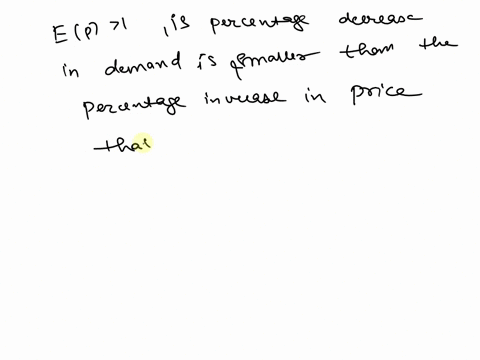 E(P) >1 , is percentage decrease
in demand is smaller than the
percentage increase in price
that